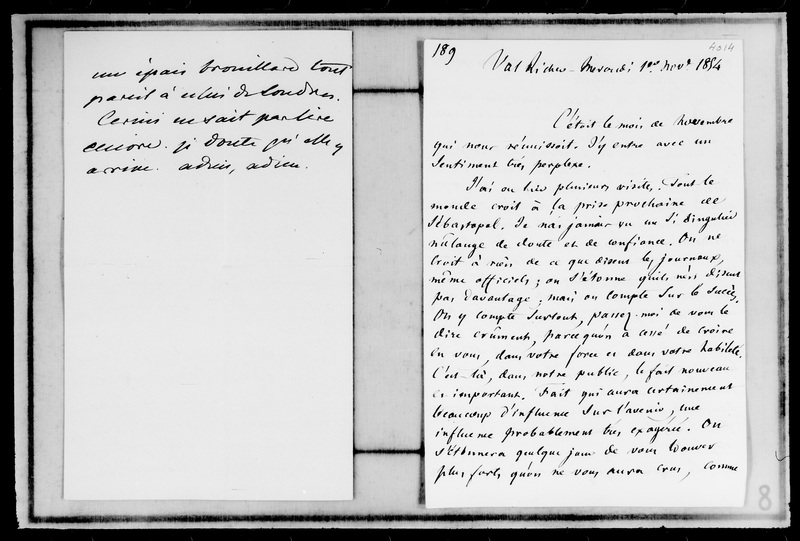 un épais brouillard tout
pareil à celui de Londres.
Cerini ne sait pas lire
encore. je doute qu'elle y
arrive. adieu, adieu.
189
4014
Val Richer - Mercredi 1er Nov. 1854
C'était le mois de Novembre
qui nous réunissait. J'y entre avec un
sentiment très perplexe.
J'ai eu hier plusieurs visites. Tout le
monde croit à la prise prochaine de
Sébastopol. Je n'ai jamais vu un si singulier
mélange de doute et de confiance. On ne
croit à rien de ce que disent les journaux,
même officiels ; on s'étonne qu'ils n'en disent
pas davantage ; mais on compte sur le succès.
On y compte surtout, passez-moi de vous le
dire crûment, parcequ'on a cessé de croire
en vous, dans votre force et dans votre habileté.
C'est là, dans notre public, le fait nouveau
et important. Fait qui aura certainement
beaucoup d'influence sur l'avenir, une
influence probablement très exagérée. On
s'étonnera quelque jour de vous trouver
plus forts qu'on ne vous aura crus, comme
8